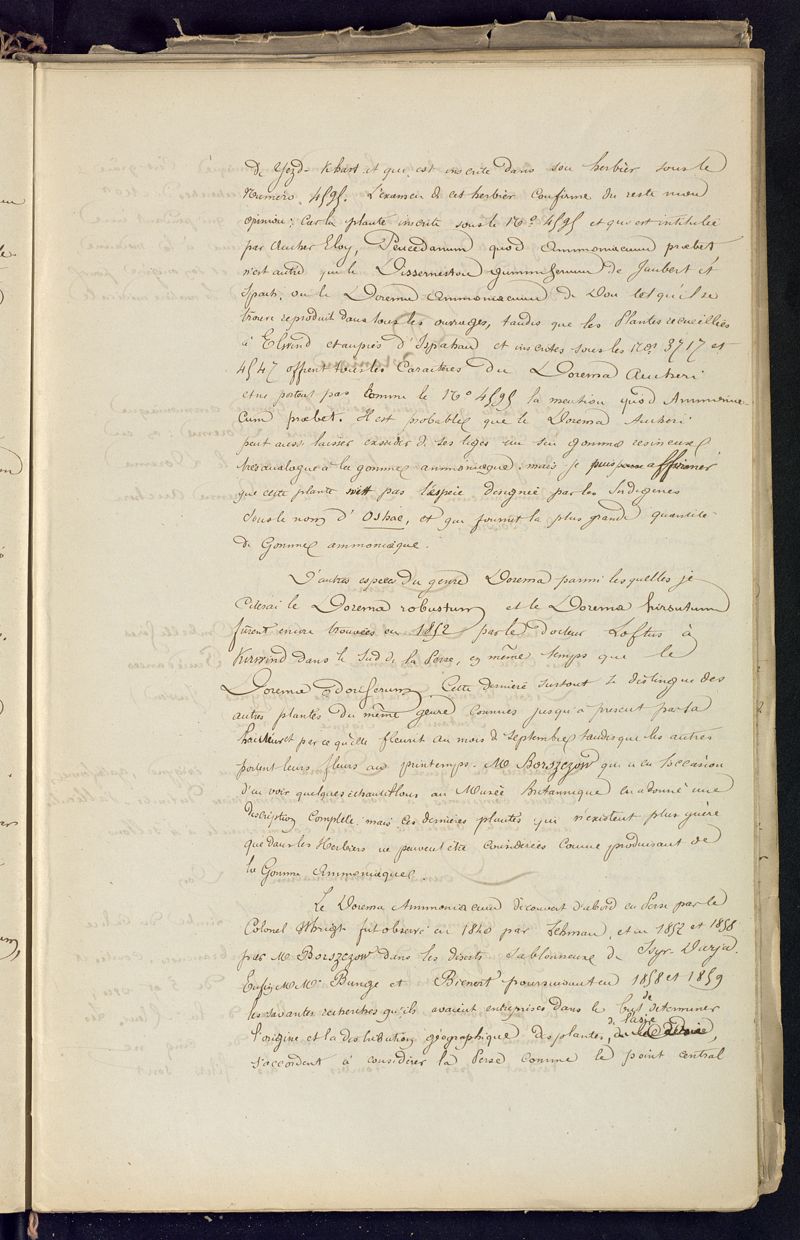 de Yezd-Khast et qui est inscrite dans son herbier sous le
Numéro 4595. L'examen de cet herbier confirme du reste mon
opinion; car la plante inscrite sous le No 4595 et qui est intitulée
par Aucher Eloy, Peucedanum quod Ammoniacum præbet
n'est autre que le Disserneston gummiferum de Jaubert et
Spach, ou le Dorema Ammoniacum de Don tel qu'il se
trouve reproduit dans tous les ouvrages, tandis que les Plantes recueillies
à Elwind et auprès d'Ispahan et inscrites sous les Nos 3717 et
4547 offrent tous les Caractères du Dorema Aucheri
et ne portent pas comme le No 4595 la mention quod Ammonia
cum præbet. Il est probable que le Dorema Aucheri
peut aussi laisser exsuder de ses tiges un suc gommo resineux
très analogue à la gomme ammoniaque; mais je puis affirmer
que cette plante n'est pas l'espèce désignée par les Indigènes
sous le nom d'Oshac, et qui fournit la plus grande quantité
de Gomme ammoniaque.
D'autres espèces du genre Dorema parmi lesquelles je
citerai le Dorema robustum et le Dorema hirsutum
furent encore trouvées en 1852 par le docteur Loftus à
Kirrind dans le Sud de la Perse, en même temps que le
Dorema odoriferum. Cette dernière surtout se distingue des
autres plantes du même genre connues jusqu'à present par sa
hauteur et par ce qu'elle fleurit au mois de Septembre tandis que les autres
portent leurs fleurs au printemps. Mr Borszczow qui a eu l'occasion
d'en voir quelques échantillons au Musée Britannique en a donné une
description complète; mais ces dernières plantes qui n'existent plus guère
que dans les Herbiers ne peuvent être considérées comme produisant de
la Gomme Ammoniaque.
Le Dorema Ammoniacum découvert d'abord en Perse par le
Colonel Whright fut observé en 1840 par Lehman, et en 1852 et 1858
par Mr Borszczow dans les déserts sablonneux de Syr-Darja.
Enfin MM. Bunge et Bienert poursuivant en 1858 et 1859
les savantes recherches qu'ils avaient entreprises dans le but de déterminer
l'origine et la distribution géographique des plantes de l'Asie,
s'accordent à considérer la Perse comme le point central